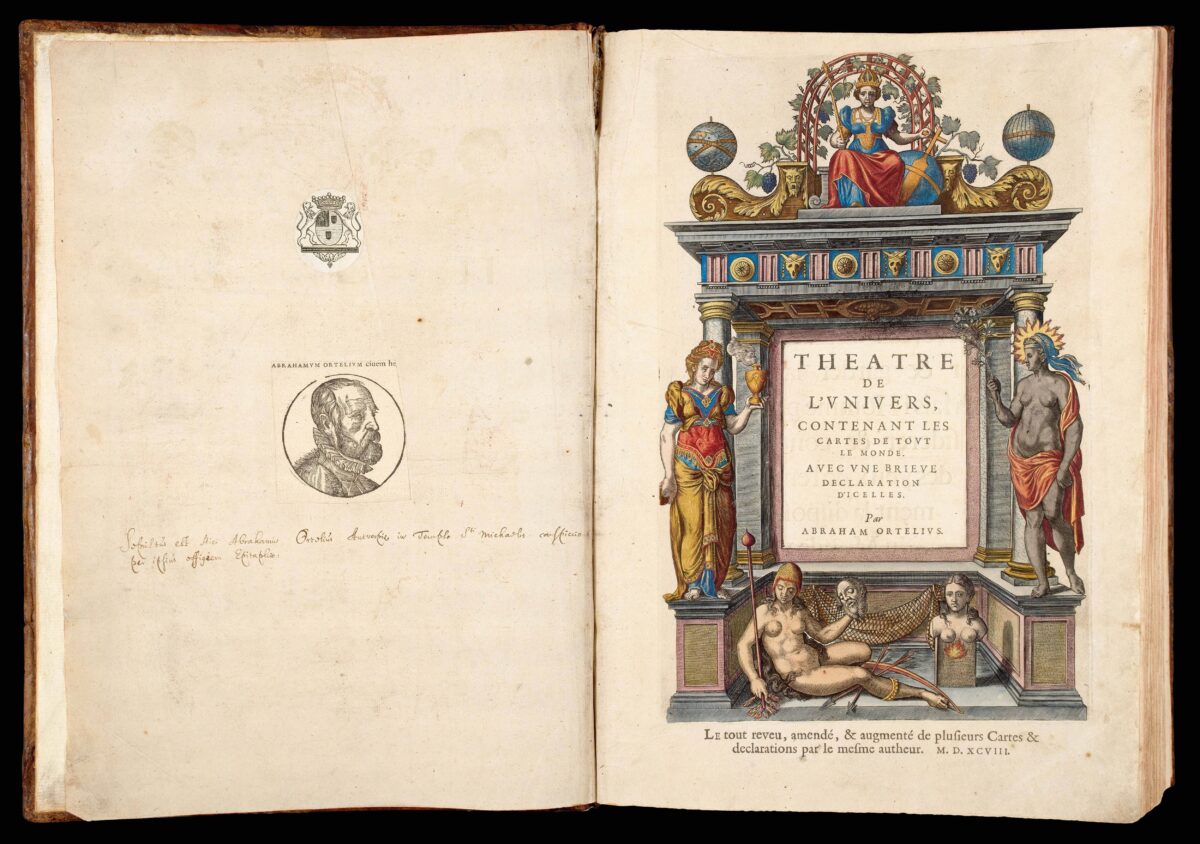 ABRAHAMVM ORTELIVM ciuem he
Sepultus est hic Abrahamus Ortelius Antverpiae in Templo Sti Michaelis
per ipsius effigiem Epitaphio:
THEATRE
DE
L'VNIVERS,
CONTENANT LES
CARTES DE TOVT
LE MONDE.
AVEC VNE BRIEVE
DECLARATION
D'ICELLES.
Par
ABRAHAM ORTELIUS.
LE tout reveu, amendé, & augmenté de pluſieurs Cartes &
declarations par le meſme autheur. M. D. XCVIII.